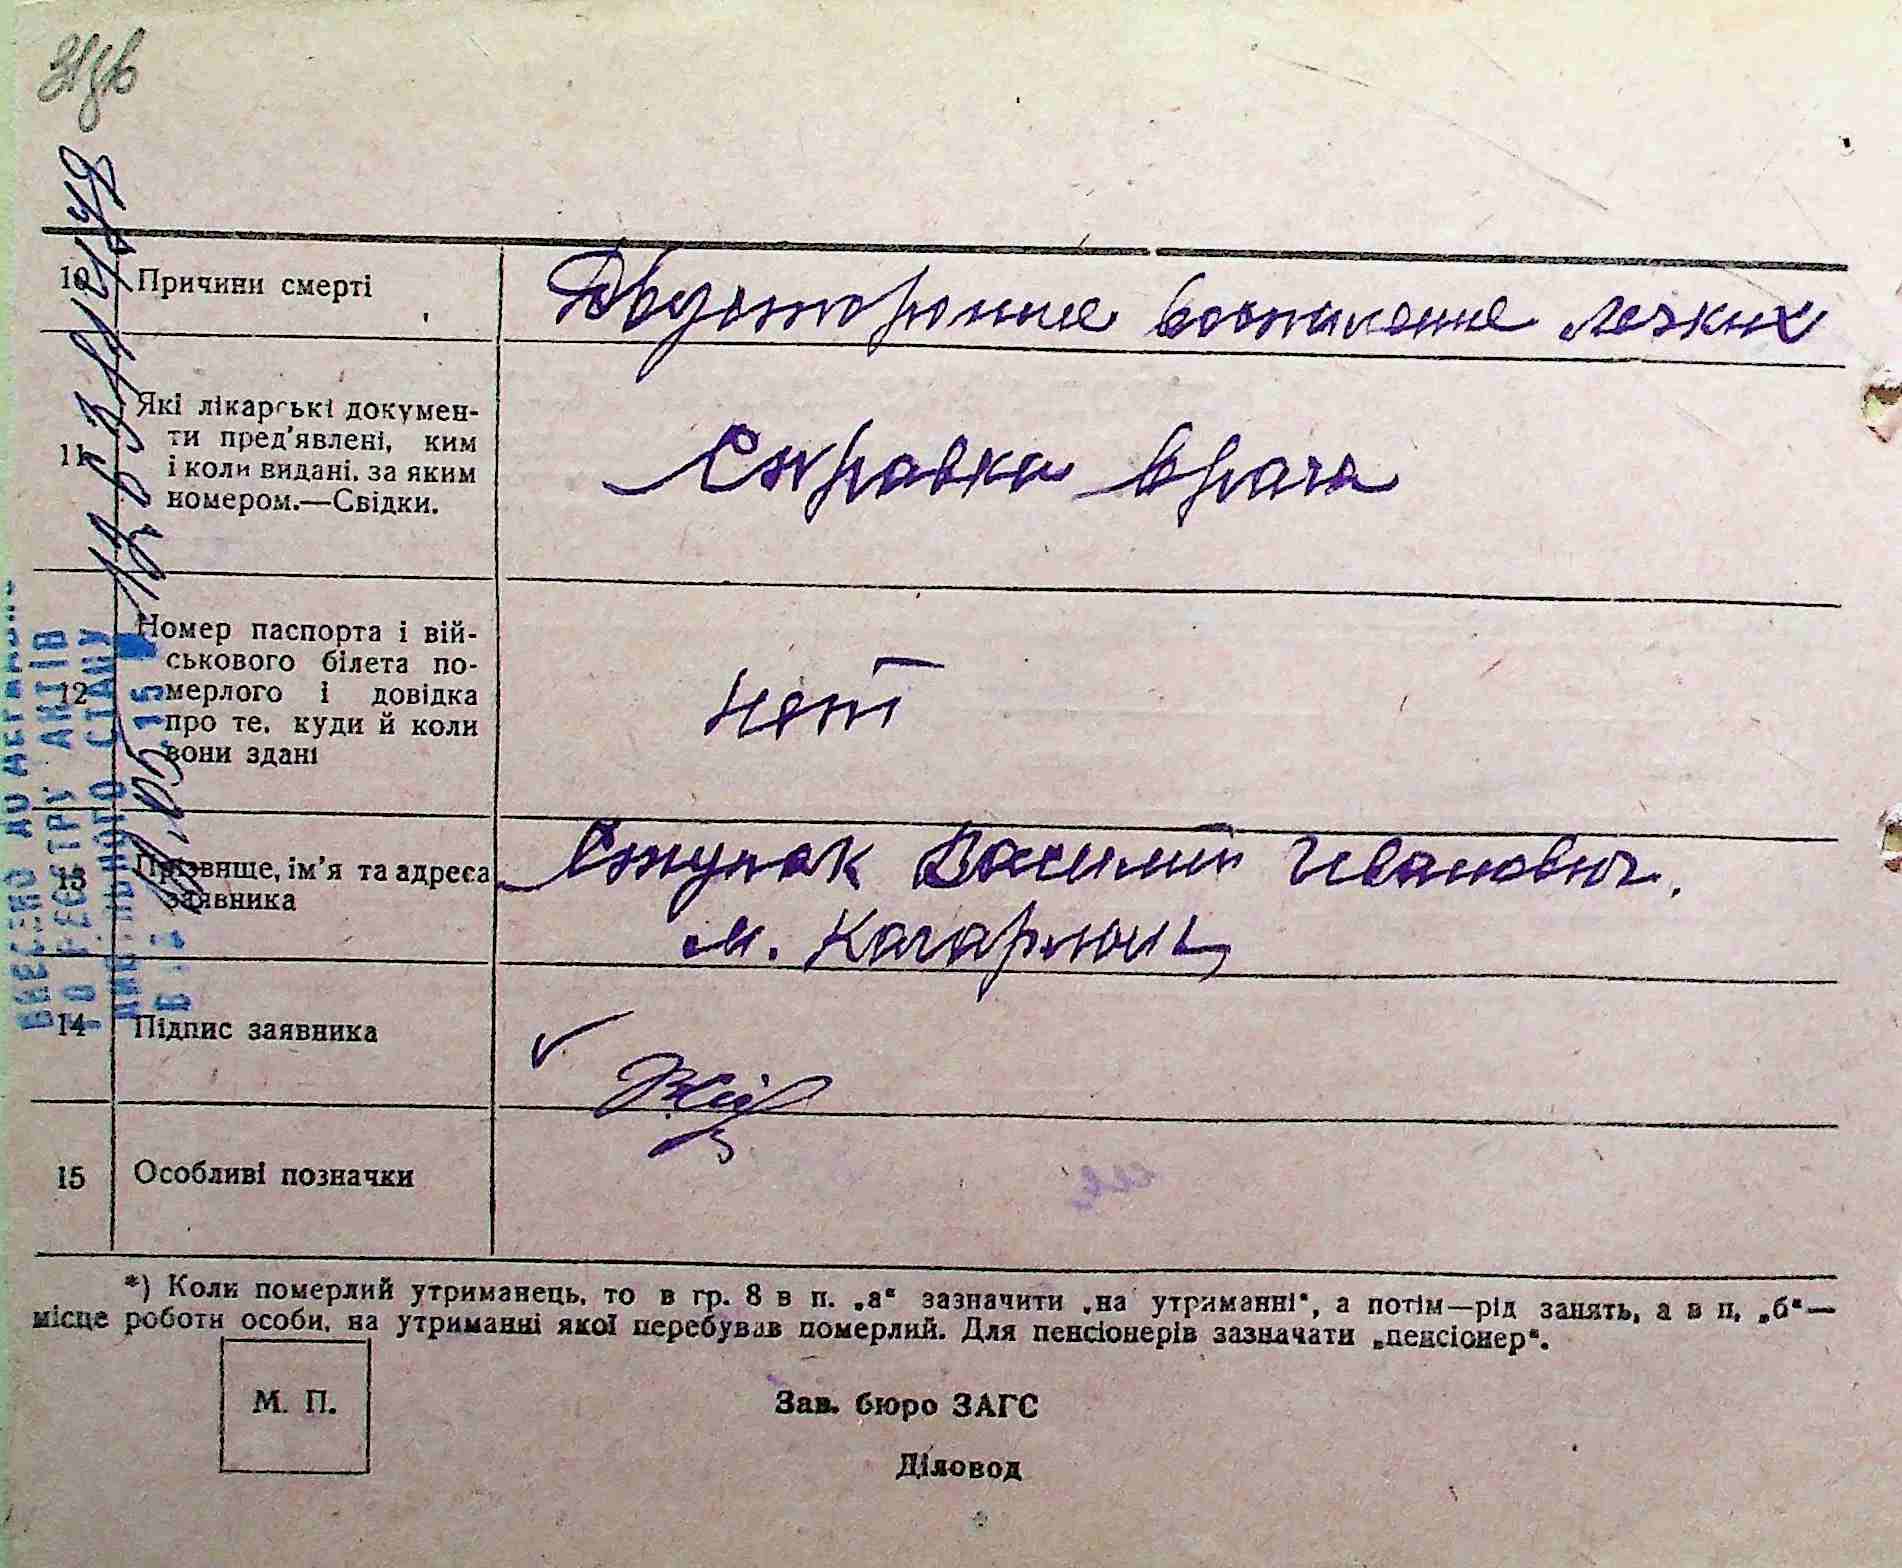 10 Причини смерті
Двустороннее воспаление легких
11 Які лікарські докумен-
ти пред'явлені, ким
і коли видані, за яким
номером.—Свідки.
Справка врача
12 Номер паспорта і вій-
ськового білета по-
мерлого і довідка
про те, куди й коли
вони здані
нет
13 Прізвище, ім'я та адреса
заявника
Ступак Василий Иванович.
м. Кагарлык
14 Підпис заявника
15 Особливі позначки
*) Коли померлий утриманець, то в гр. 8 в п. „а“ зазначити „на утриманні“, а потім—рід занять, а в п. „б“—
місце роботи особи, на утриманні якої перебував померлий. Для пенсіонерів зазначати „пенсіонер“.
М. П.
Зав. бюро ЗАГС
Діловод
ВНЕСЕНО ДО ДЕРЖАВНО
ГО РЕЄСТРУ АКТІВ
ЦИВІЛЬНОГО СТАНУ